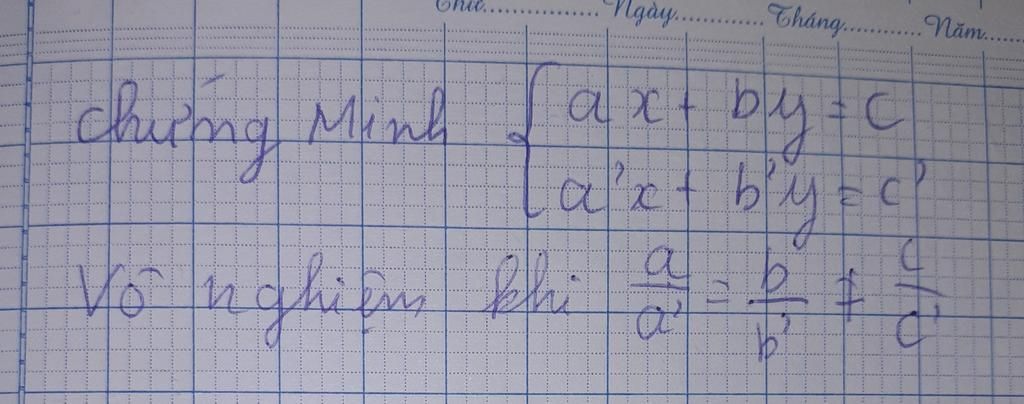 Thứ............Ngày............Tháng............Năm......
Chứng Minh { ax + by = c
a'x + b'y = c'
Vô nghiệm khi a/a' = b/b' ≠ c/c'